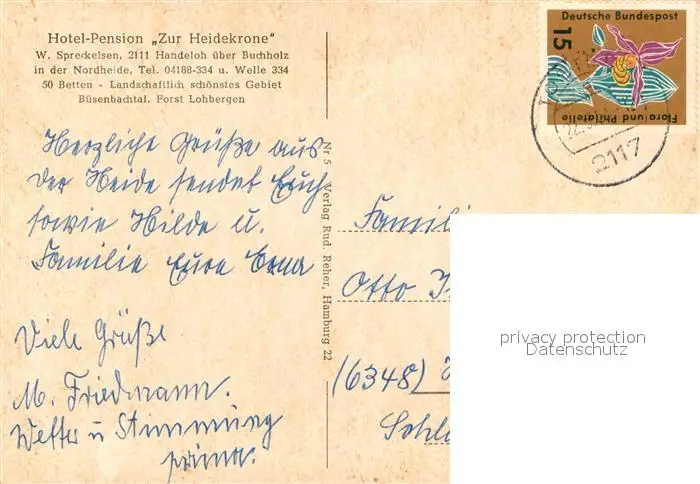 Hotel-Pension „Zur Heidekrone"
W. Spreckelsen, 2111 Handeloh über Buchholz
in der Nordheide, Tel. 04188-334 u. Welle 334
50 Betten - Landschaftlich schönstes Gebiet
Büsenbachtal. Forst Lohbergen
Herzliche Grüße aus
der Heide sendet Euch
sowie Hilde u.
Familie Eure Erna
Viele Grüße
M. Friedmann.
Wetter u Stimmung
prima.
Nr 5 Verlag Rud. Reher, Hamburg 22
Deutsche Bundespost
15
Flora und Philatelie
2117
Famili
Otto
(6348)
privacy protection
Datenschutz